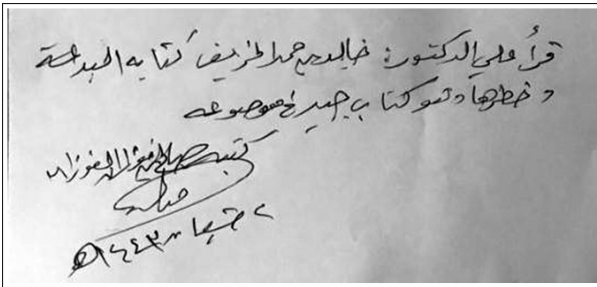 قرأ علي الدكتور: خالد بن حمد الخريف كتابه البدعة
وخطرها وهو كتاب جيد في موضوعه
كتبه صالح بن فوزان الفوزان
١٤٤٣هـ